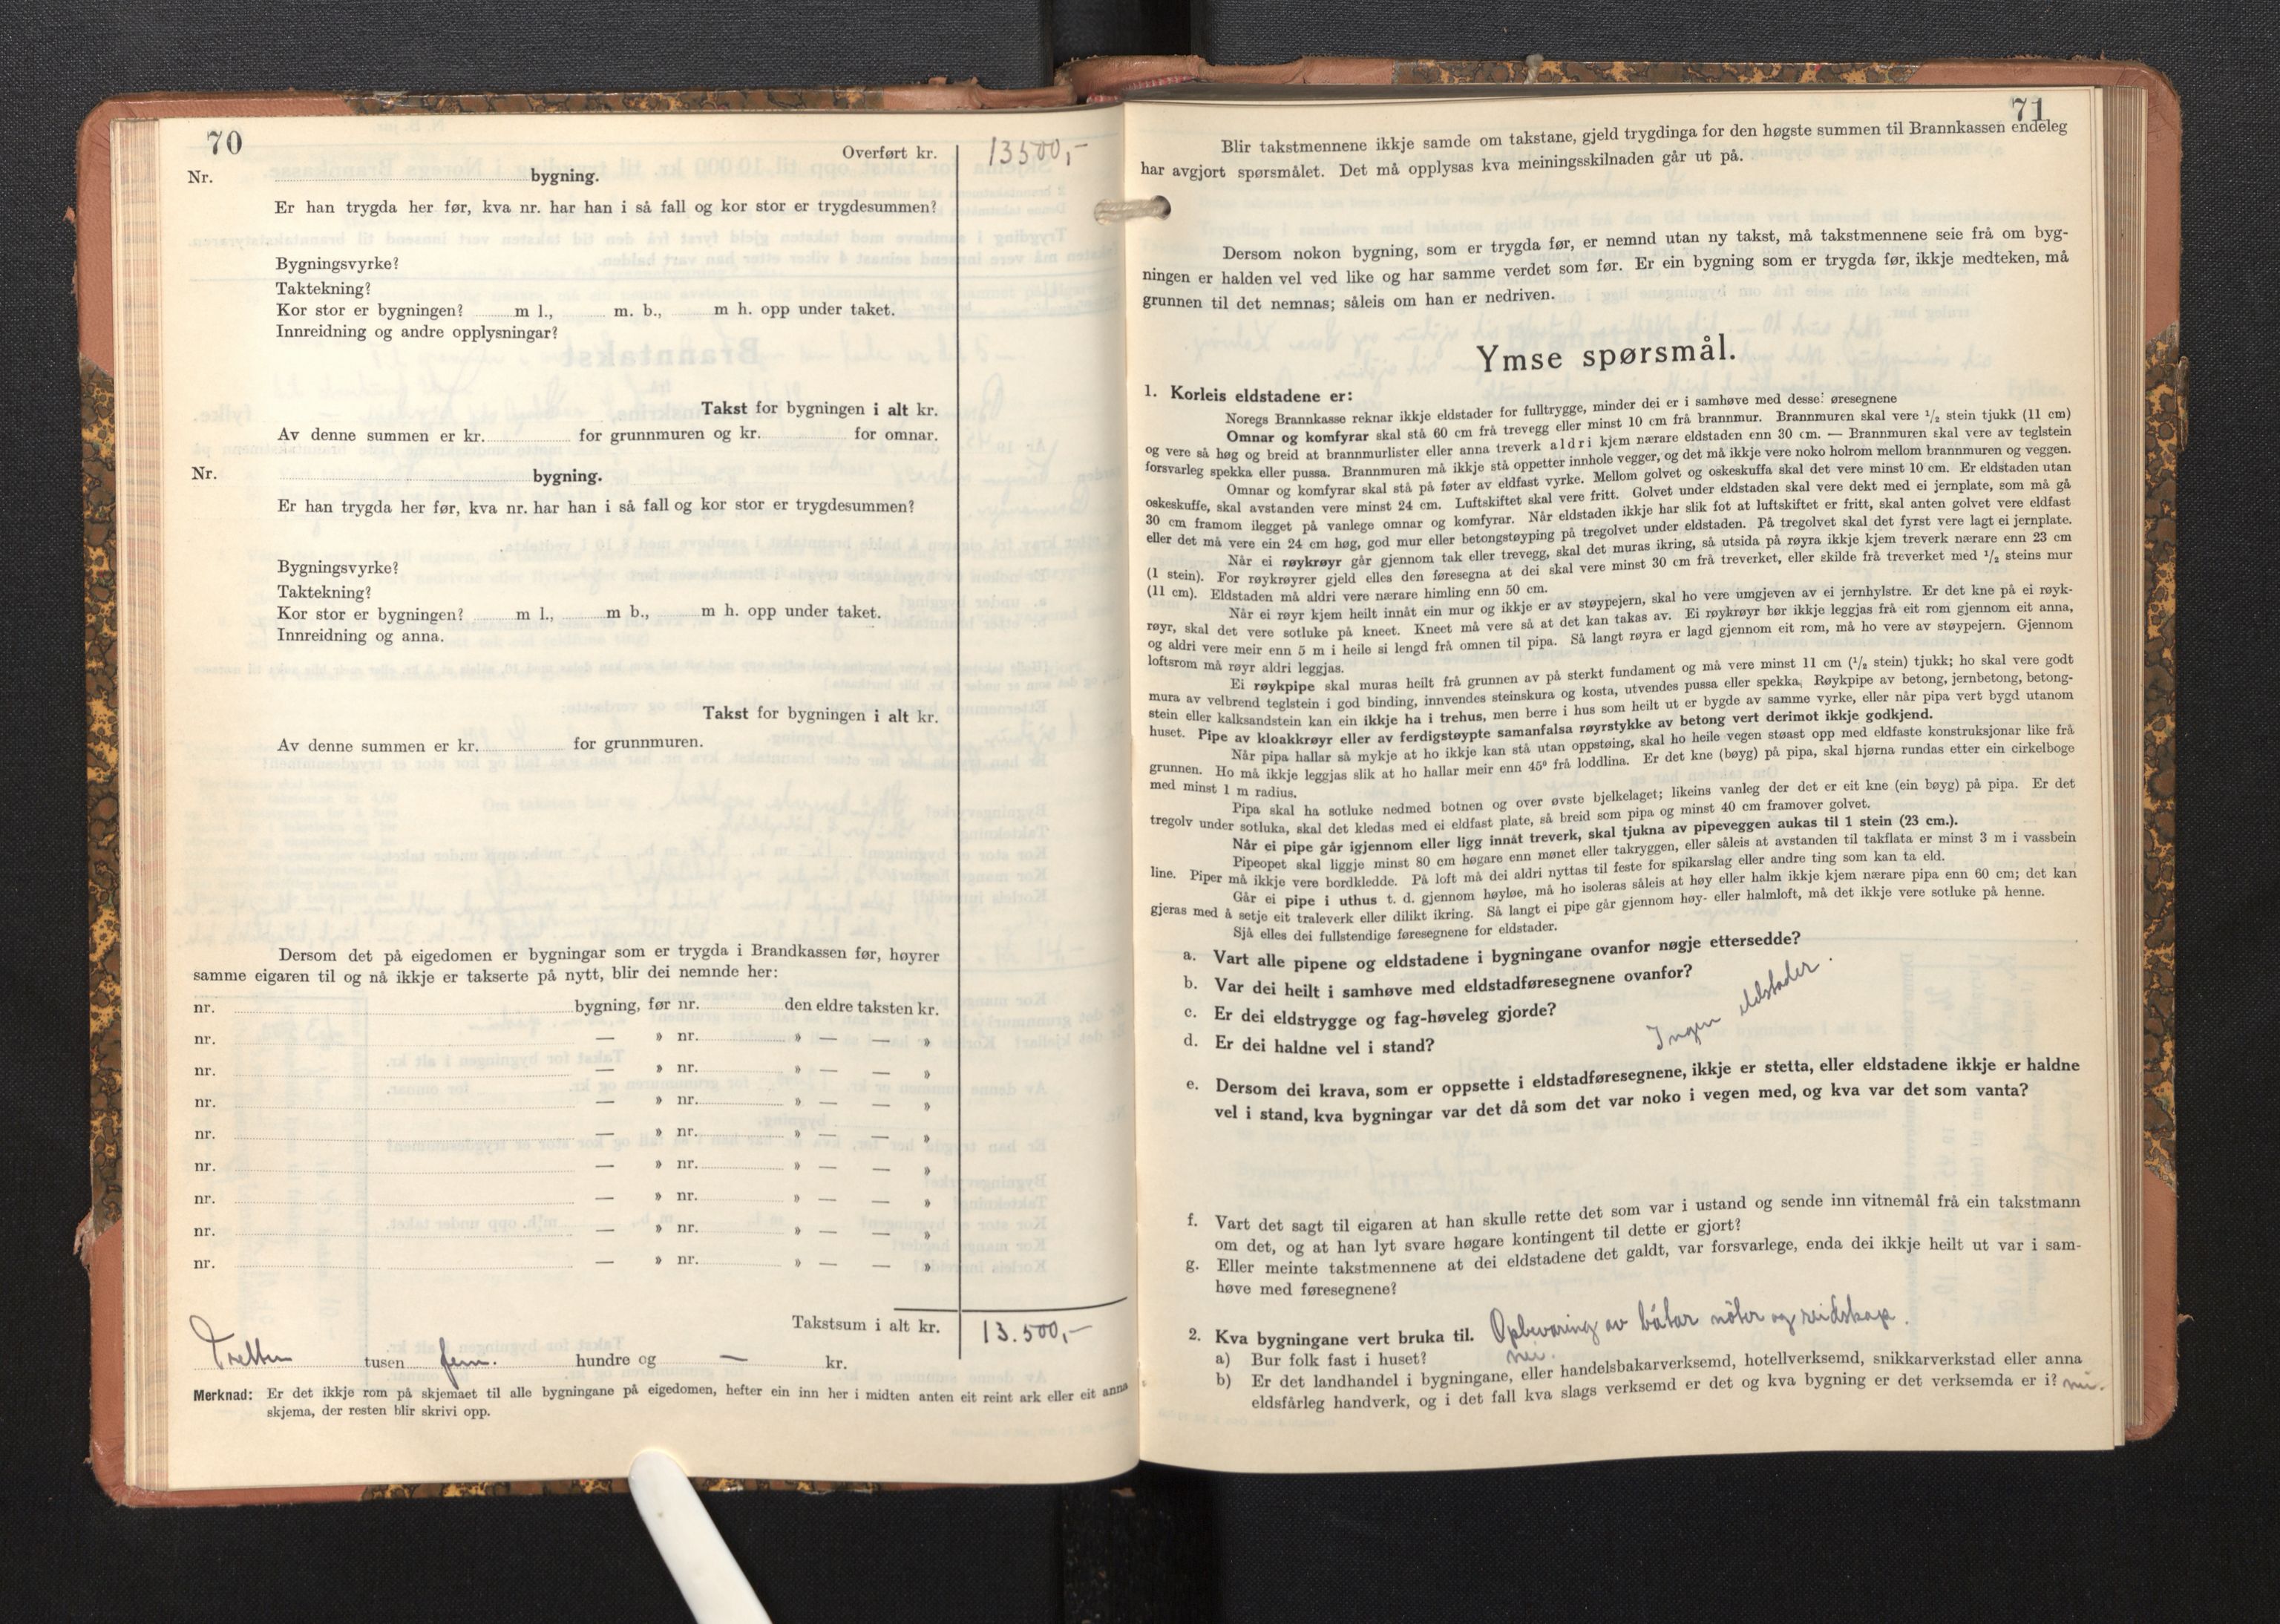 70
Overført kr. 13500,-
Nr. bygning.
Er han trygda her før, kva nr. har han i så fall og kor stor er trygdesummen?
Bygningsvyrke?
Taktekning?
Kor stor er bygningen? m l., m. b., m h. opp under taket.
Innreidning og andre opplysningar?
Takst for bygningen i alt kr.
Av denne summen er kr. for grunnmuren og kr. for omnar.
Nr. bygning.
Er han trygda her før, kva nr. har han i så fall og kor stor er trygdesummen?
Bygningsvyrke?
Taktekning?
Kor stor er bygningen? m l., m b., m h. opp under taket.
Innreidning og anna.
Takst for bygningen i alt kr.
Av denne summen er kr. for grunnmuren.
Dersom det på eigedomen er bygningar som er trygda i Brandkassen før, høyrer
samme eigaren til og nå ikkje er takserte på nytt, blir dei nemnde her:
nr. bygning, før nr. den eldre taksten kr.
nr. — » nr. » — — »
nr. — » nr. » — — »
nr. — » nr. » — — »
nr. — » nr. » — — »
nr. — » nr. » — — »
nr. — » nr. » — — »
nr. — » nr. » — — »
nr. — » nr. » — — »
Takstsum i alt kr. 13.500,-
Tretten tusen fem. hundre og — kr.
Merknad: Er det ikkje rom på skjemaet til alle bygningane på eigedomen, hefter ein inn her i midten anten eit reint ark eller eit anna
skjema, der resten blir skrivi opp.
71
Blir takstmennene ikkje samde om takstane, gjeld trygdinga for den høgste summen til Brannkassen endeleg
har avgjort spørsmålet. Det må opplysas kva meiningsskilnaden går ut på.
Dersom nokon bygning, som er trygda før, er nemnd utan ny takst, må takstmennene seie frå om byg-
ningen er halden vel ved like og har samme verdet som før. Er ein bygning som er trygda før, ikkje medteken, må
grunnen til det nemnas; såleis om han er nedriven.
Ymse spørsmål.
1. Korleis eldstadene er:
Noregs Brannkasse reknar ikkje eldstader for fulltrygge, minder dei er i samhøve med desse: øresegnene
Omnar og komfyrar skal stå 60 cm frå trevegg eller minst 10 cm frå brannmur. Brannmuren skal vere 1/2 stein tjukk (11 cm)
og vere så høg og breid at brannmurlister eller anna treverk aldri kjem nærare eldstaden enn 30 cm. — Brannmuren skal vere av teglstein
forsvarleg spekka eller pussa. Brannmuren må ikkje stå oppetter innhole vegger, og det må ikkje vere noko holrom mellom brannmuren og veggen.
Omnar og komfyrar skal stå på føter av eldfast vyrke. Mellom golvet og oskeskuffa skal det vere minst 10 cm. Er eldstaden utan
oskeskuffe, skal avstanden vere minst 24 cm. Luftskiftet skal vere fritt. Golvet under eldstaden skal vere dekt med ei jernplate, som må gå
30 cm framom ilegget på vanlege omnar og komfyrar. Når eldstaden ikkje har slik fot at luftskiftet er fritt, skal anten golvet vere eldfast
eller det må vere ein 24 cm høg, god mur eller betongstøyping på tregolvet under eldstaden. På tregolvet skal det fyrst vere lagt ei jernplate.
Når ei røykrøyr går gjennom tak eller trevegg, skal det muras ikring, så utsida på røyra ikkje kjem treverk nærare enn 23 cm
(1 stein). For røykrøyrer gjeld elles den føresegna at dei skal vere minst 30 cm frå treverket, eller skilde frå treverket med 1/2 steins mur
(11 cm). Eldstaden må aldri vere nærare himling enn 50 cm.
Når ei røyr kjem heilt innåt ein mur og ikkje er av støypejern, skal ho vere umgjeven av ei jernhylstre. Er det kne på ei røyk-
røyr, skal det vere sotluke på kneet. Kneet må vere så at det kan takas av. Ei røykrøyr bør ikkje leggjas frå eit rom gjennom eit anna,
og aldri vere meir enn 5 m i heile si lengd frå omnen til pipa. Så langt røyra er lagd gjennom eit rom, må ho vere av støypejern. Gjennom
loftsrom må røyr aldri leggjas.
Ei røykpipe skal muras heilt frå grunnen av på sterkt fundament og må vere minst 11 cm (1/2 stein) tjukk; ho skal vere godt
mura av velbrend teglstein i god binding, innvendes steinskura og kosta, utvendes pussa eller spekka. Røykpipe av betong, jernbetong, betong-
stein eller kalksandstein kan ein ikkje ha i trehus, men berre i hus som heilt ut er bygde av samme vyrke, eller når pipa vert bygd utanom
huset. Pipe av kloakkrøyr eller av ferdigstøypte samanfalsa røyrstykke av betong vert derimot ikkje godkjend.
Når pipa hallar så mykje at ho ikkje kan stå utan oppstøing, skal ho heile vegen støast opp med eldfaste konstruksjonar like frå
grunnen. Ho må ikkje leggjas slik at ho hallar meir enn 45° frå loddlina. Er det kne (bøyg) på pipa, skal hjørna rundas etter ein cirkelboge
med minst 1 m radius.
Pipa skal ha sotluke nedmed botnen og over øvste bjelkelaget; likeins vanleg der det er eit kne (ein bøyg) på pipa. Er det
tregolv under sotluka, skal det kledas med ei eldfast plate, så breid som pipa og minst 40 cm framover golvet.
Når ei pipe går igjennom eller ligg innåt treverk, skal tjukna av pipeveggen aukas til 1 stein (23 cm.).
Pipeopet skal liggje minst 80 cm høgare enn mønet eller takryggen, eller såleis at avstanden til takflata er minst 3 m i vassbein
line. Piper må ikkje vere bordkledde. På loft må dei aldri nyttas til feste for spikarslag eller andre ting som kan ta eld.
Går ei pipe i uthus t. d. gjennom høyløe, må ho isoleras såleis at høy eller halm ikkje kjem nærare pipa enn 60 cm; det kan
gjeras med å setje eit traleverk eller dilikt ikring. Så langt ei pipe går gjennom høy- eller halmloft, må det ikkje vere sotluke på henne.
Sjå elles dei fullstendige føresegnene for eldstader.
a. Vart alle pipene og eldstadene i bygningane ovanfor nøgje ettersedde?
b. Var dei heilt i samhøve med eldstadføresegnene ovanfor?
c. Er dei eldstrygge og fag-høveleg gjorde?
d. Er dei haldne vel i stand?
Ingen eldstader.
e. Dersom dei krava, som er oppsette i eldstadføresegnene, ikkje er stetta, eller eldstadene ikkje er haldne
vel i stand, kva bygningar var det då som det var noko i vegen med, og kva var det som vanta?
f. Vart det sagt til eigaren at han skulle rette det som var i ustand og sende inn vitnemål frå ein takstmann
om det, og at han lyt svare høgare kontingent til dette er gjort?
g. Eller meinte takstmennene at dei eldstadene det galdt, var forsvarlege, enda dei ikkje heilt ut var i sam-
høve med føresegnene?
2. Kva bygningane vert bruka til. Opbevaring av båtar nöter og reidskap.
a) Bur folk fast i huset? nei.
b) Er det landhandel i bygningane, eller handelsbakarverksemd, hotellverksemd, snikkarverkstad eller anna
eldsfårleg handverk, og i det fall kva slags verksemd er det og kva bygning er det verksemda er i? nei.